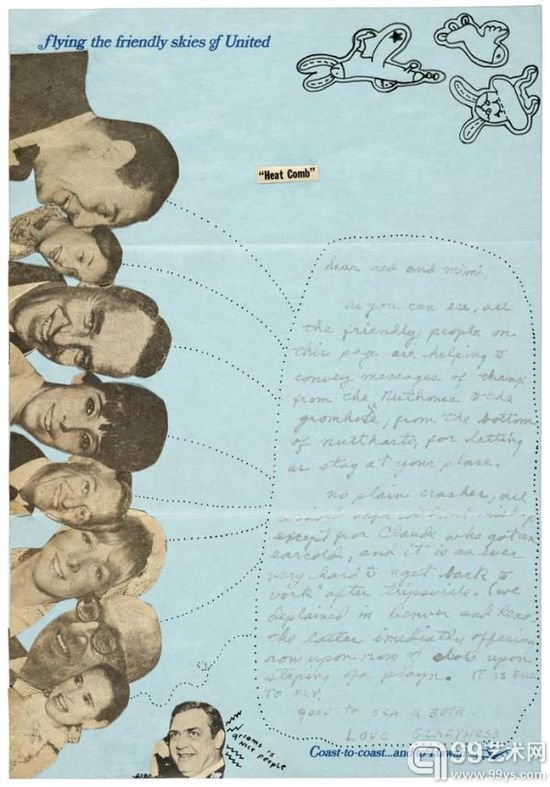 flying the friendly skies of United
"Heat Comb"
dear red and mimi,
as you can see, all
the friendly people on
this page are helping to
convey messages of thanx
from the Nutthouse to the
gromhole, from the bottom
of nuttharts, for letting
us stay at your plase.
no plain crashes, all
except for Claude who got an
earcold, and it is as ever
very hard to get back to
work after
deplained in Denver and Reno
the latter imediatly offering
row upon row of slots upon
steping of a playn. IT IS FUN
TO FLY.
good to see u both
LOVE
grooms is
nice people
Coast-to-coast...and to Hawaii
99艺术网
www.99ys.com